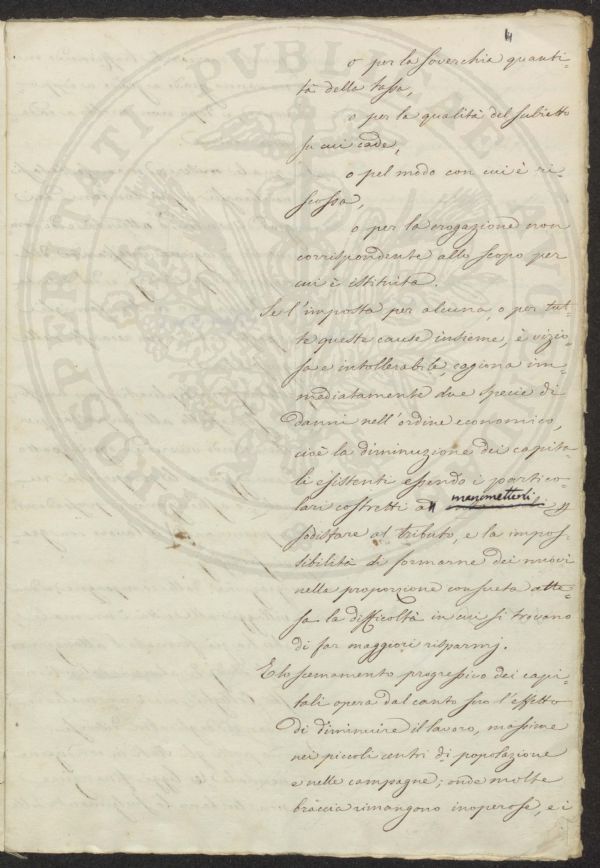 4
o per la soverchia quanti-
tà della tassa,
o per la qualità del subietto
su cui cade,
o pel modo con cui è ri-
scossa,
o per la erogazione non
corrispondente allo scopo per
cui è istituita.
Se l'imposta per alcuna, o per tut-
te queste cause insieme, è vizio-
sa e intollerabile, cagiona im-
mediatamente due specie di
danni nell'ordine economico,
cioè la diminuzione dei capita-
li esistenti essendo i partico-
lari costretti a manometterli
sodisfare al tributo, e la impos-
sibilità di formarne dei nuovi
nella proporzione consueta atte-
sa la difficoltà in cui si trovano
di far maggiori risparmj.
E lo scemamento progressivo dei capi-
tali opera dal canto suo l'effetto
di diminuire il lavoro, massime
nei piccoli centri di popolazione
e nelle campagne; onde molte
braccia rimangono inoperose, e i
PROSPERITATI PVBLICAE